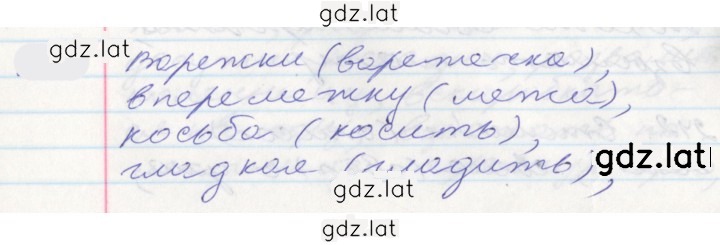 gdz.lat
gdz.lat
Варежки (варежечка),
вперемежку (межа),
косьба (косить),
гладкая (гладить),
gdz.lat
gdz.lat
gdz.lat